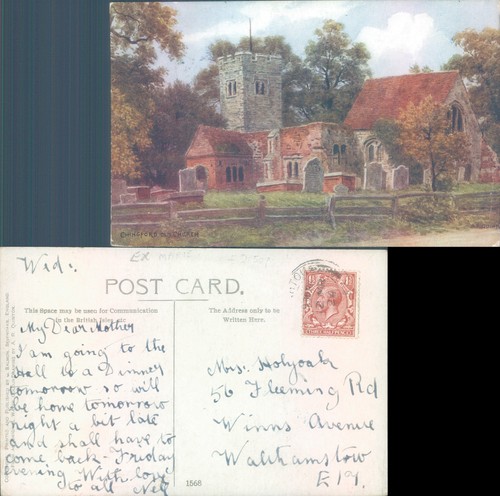 CHINGFORD OLD CHURCH
Wed:
POST CARD.
This Space may be used for Communication
in the British Isles, etc.
The Address only to be
Written Here.
My Dear Mother
I am going to the
Hall to a Dinner
tomorrow so will
be home tomorrow
night a bit late
and shall have to
come back Friday
evening With love
to all
Mrs. Holyoak
56 Fleming Rd
Winns Avenue
Walthamstow
E 17.
THREE HALFPENCE
1568